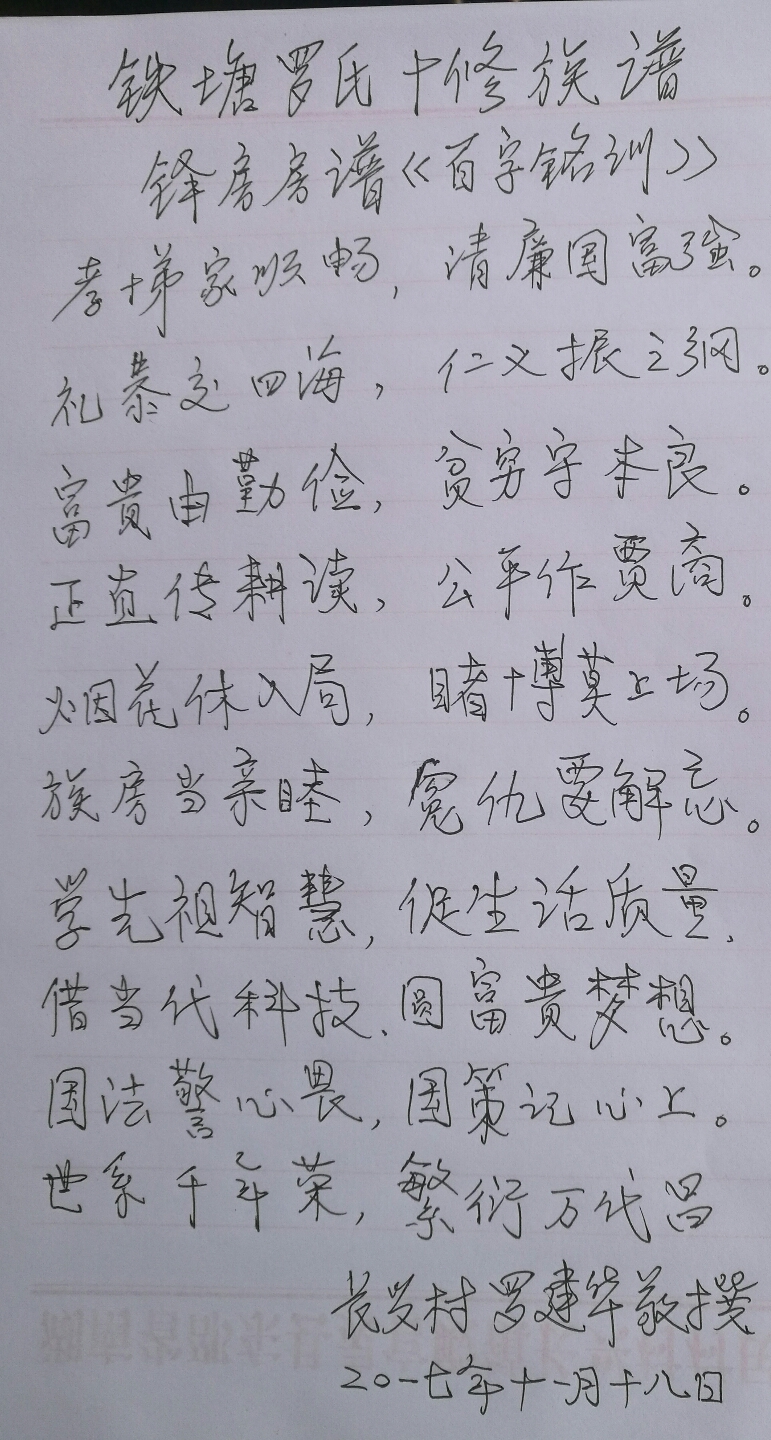 铁塘罗氏十修族谱
铎房房谱《百字铭训》
孝悌家顺畅，清廉国富强。
礼恭交四海，仁义振三纲。
富贵由勤俭，贫穷守本良。
正直传耕读，公平作贾商。
烟花休入局，赌博莫上场。
族房当亲睦，冤仇要解忘。
学先祖智慧，促生活质量，
借当代科技、圆富贵梦想。
国法警心畏，国策记心上。
世系千年荣，繁衍万代昌
长义村罗建华敬撰
二0一七年十一月十八日